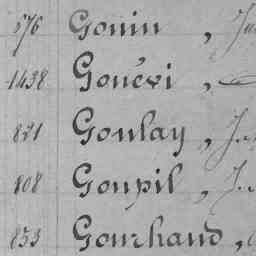 576 Gonin, Ju
1438 Gonévi,
821 Goulay, J
808 Goupil, J
853 Gourhand,